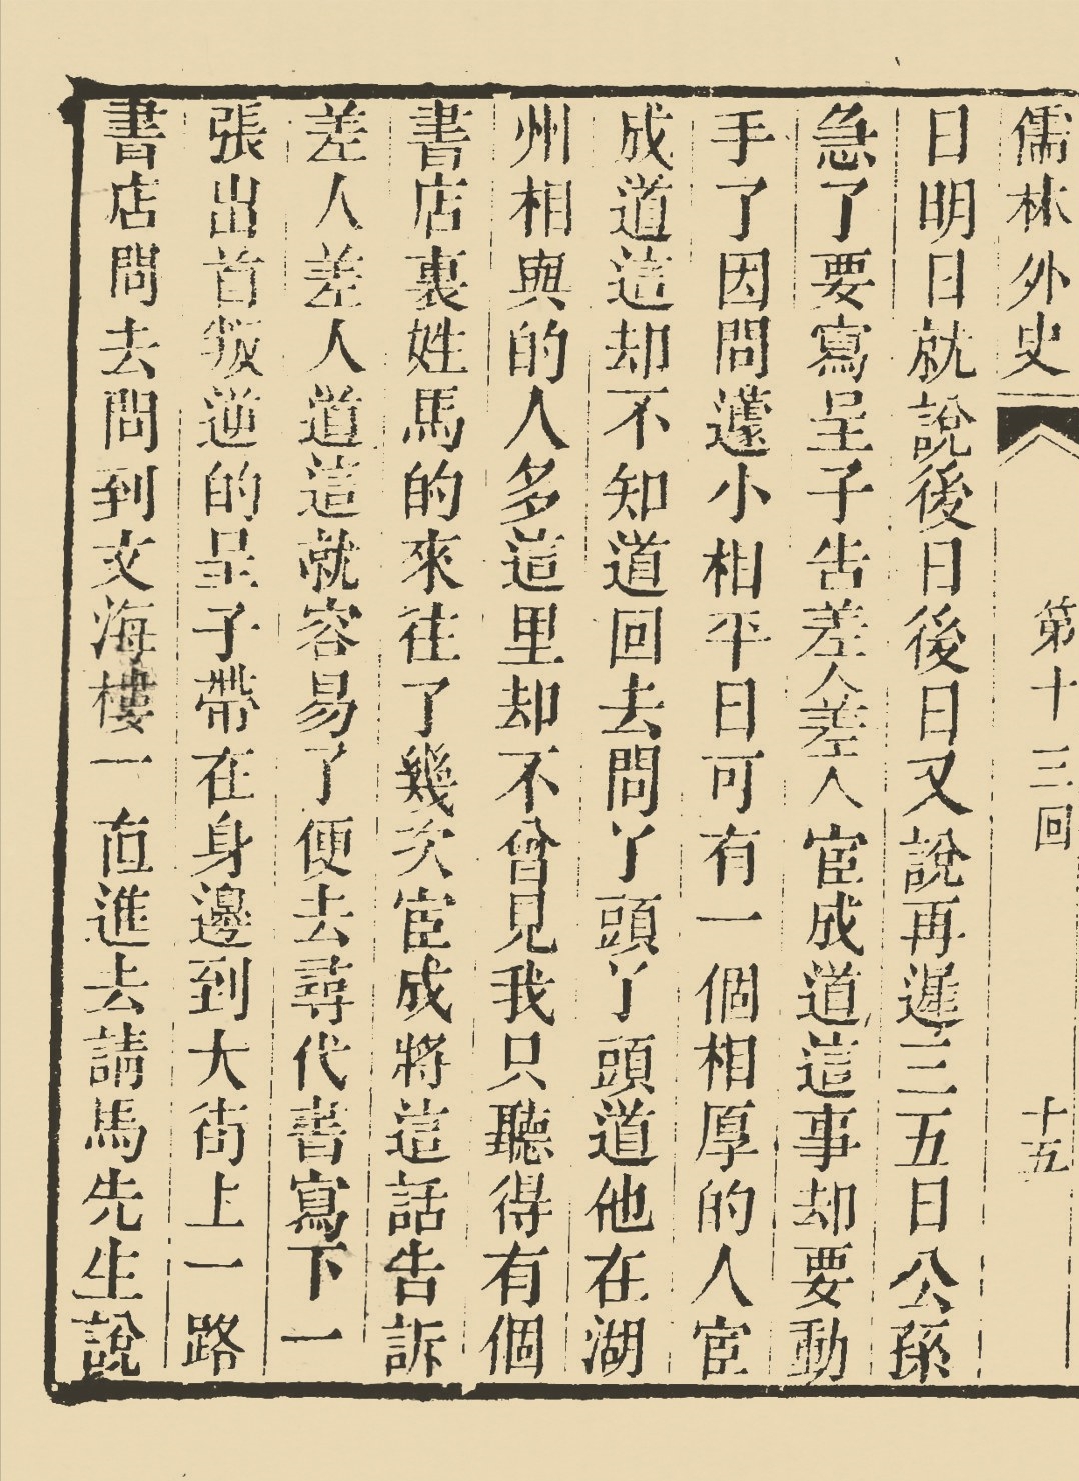 儒林外史 第十三回 十五
日明日就說後日後日又說再遲三五日公孫
急了要寫呈子告差人差人宦成道這事却要動
手了因問蘧小相平日可有一個相厚的人宦
成道這却不知道回去問丫頭丫頭道他在湖
州相與的人多這里却不曾見我只聽得有個
書店裏姓馬的來往了幾次宦成將這話告訴
差人差人道這就容易了便去尋代書寫下一
張出首叛逆的呈子帶在身邊到大街上一路
書店問去問到文海樓一直進去請馬先生說